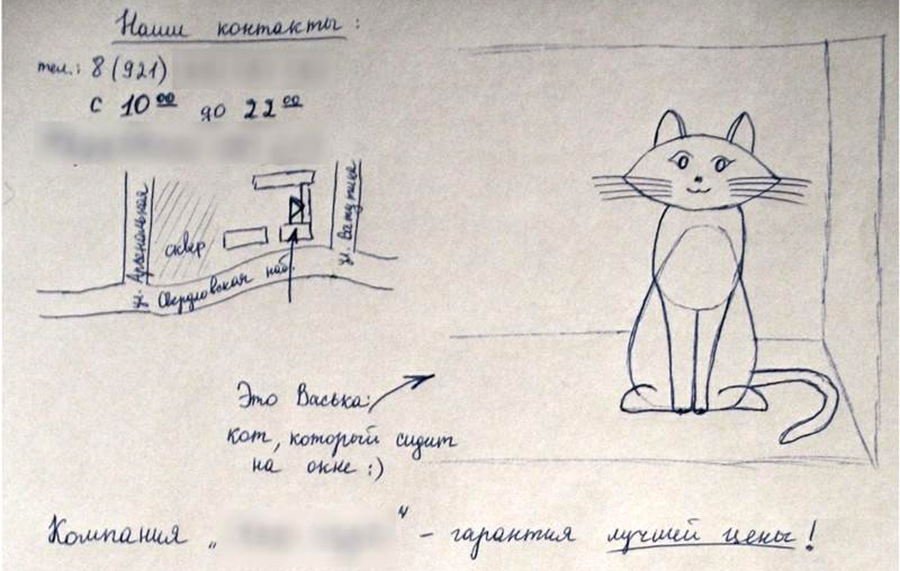 Наши контакты:
тел.: 8 (921)
с 10⁰⁰ до 22⁰⁰
ул. Арсенальная
сквер
Свердловская наб.
ул. Ватутина
Это Васька:
кот, который сидит
на окне :)
Компания „ “ – гарантия лучшей цены!